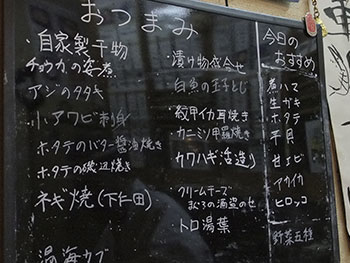 おつまみ
・自家製干物
チョウカの姿煮
アジのタタキ
小アワビ刺身
ホタテのバター醤油焼き
ホタテの磯辺焼き
ネギ焼(下仁田)
温海カブ
・漬け物盛合せ
白魚の玉子とじ
紋甲イカ耳焼き
カニミソ甲羅焼き
カワハギ活造り
クリームチーズ
まぐろの酒盗のせ
トロ湯葉
今日の
おすすめ
煮ハマ
生ガキ
ホタテ
平貝
甘エビ
アオイカ
ヒロッコ
野菜五種